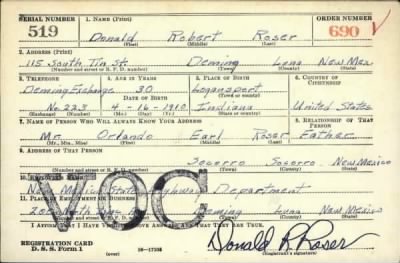 SERIAL NUMBER 1. NAME (Print) ORDER NUMBER
519 Donald Robert Roser 690
(First) (Middle) (Last)
2. ADDRESS (Print)
115 South Tin St. Deming Luna New Mex
(Number and street or R. F. D. number) (Town) (County) (State)
3. TELEPHONE 4. AGE IN YEARS 5. PLACE OF BIRTH 6. COUNTRY OF CITIZENSHIP
Deming Exchange 30 Logansport
DATE OF BIRTH
No 223 4-16-1910 Indiana United States
(Exchange) (Number) (Mo.) (Day) (Yr.) (State or country)
7. NAME OF PERSON WHO WILL ALWAYS KNOW YOUR ADDRESS 8. RELATIONSHIP OF THAT PERSON
Mr. Orlando Earl Roser Father
(Mr., Mrs., Miss) (First) (Middle) (Last)
9. ADDRESS OF THAT PERSON
Socorro Socorro New Mexico
(Number and street or R. F. D. number) (Town) (County) (State)
New Mexico State Highway Department
11. PLACE OF EMPLOYMENT OR BUSINESS
North Deming Luna New Mexico
(Number and street or R. F. D. number) (Town) (County) (State)
I AFFIRM THAT I HAVE ANSWERS AND THAT THEY ARE TRUE.
VOC
REGISTRATION CARD
D. S. S. Form 1 (over) 16-17105 Donald R Roser
(Registrant's signature)